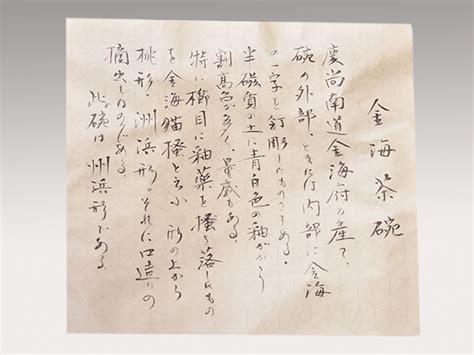 金海茶碗
慶尚南道金海府の産で、
碗の外部、ときには内部に金海
の二字を釘彫したものもある。
半磁質の上に青白色の釉がかゝり
割高台が多く、量感もある。
特に櫛目に釉薬を掻き落したもの
を金海猫掻と云ふ 形の上から
桃形、洲浜形。それに口造りの
樋出しものである。
此碗は 州浜形である。